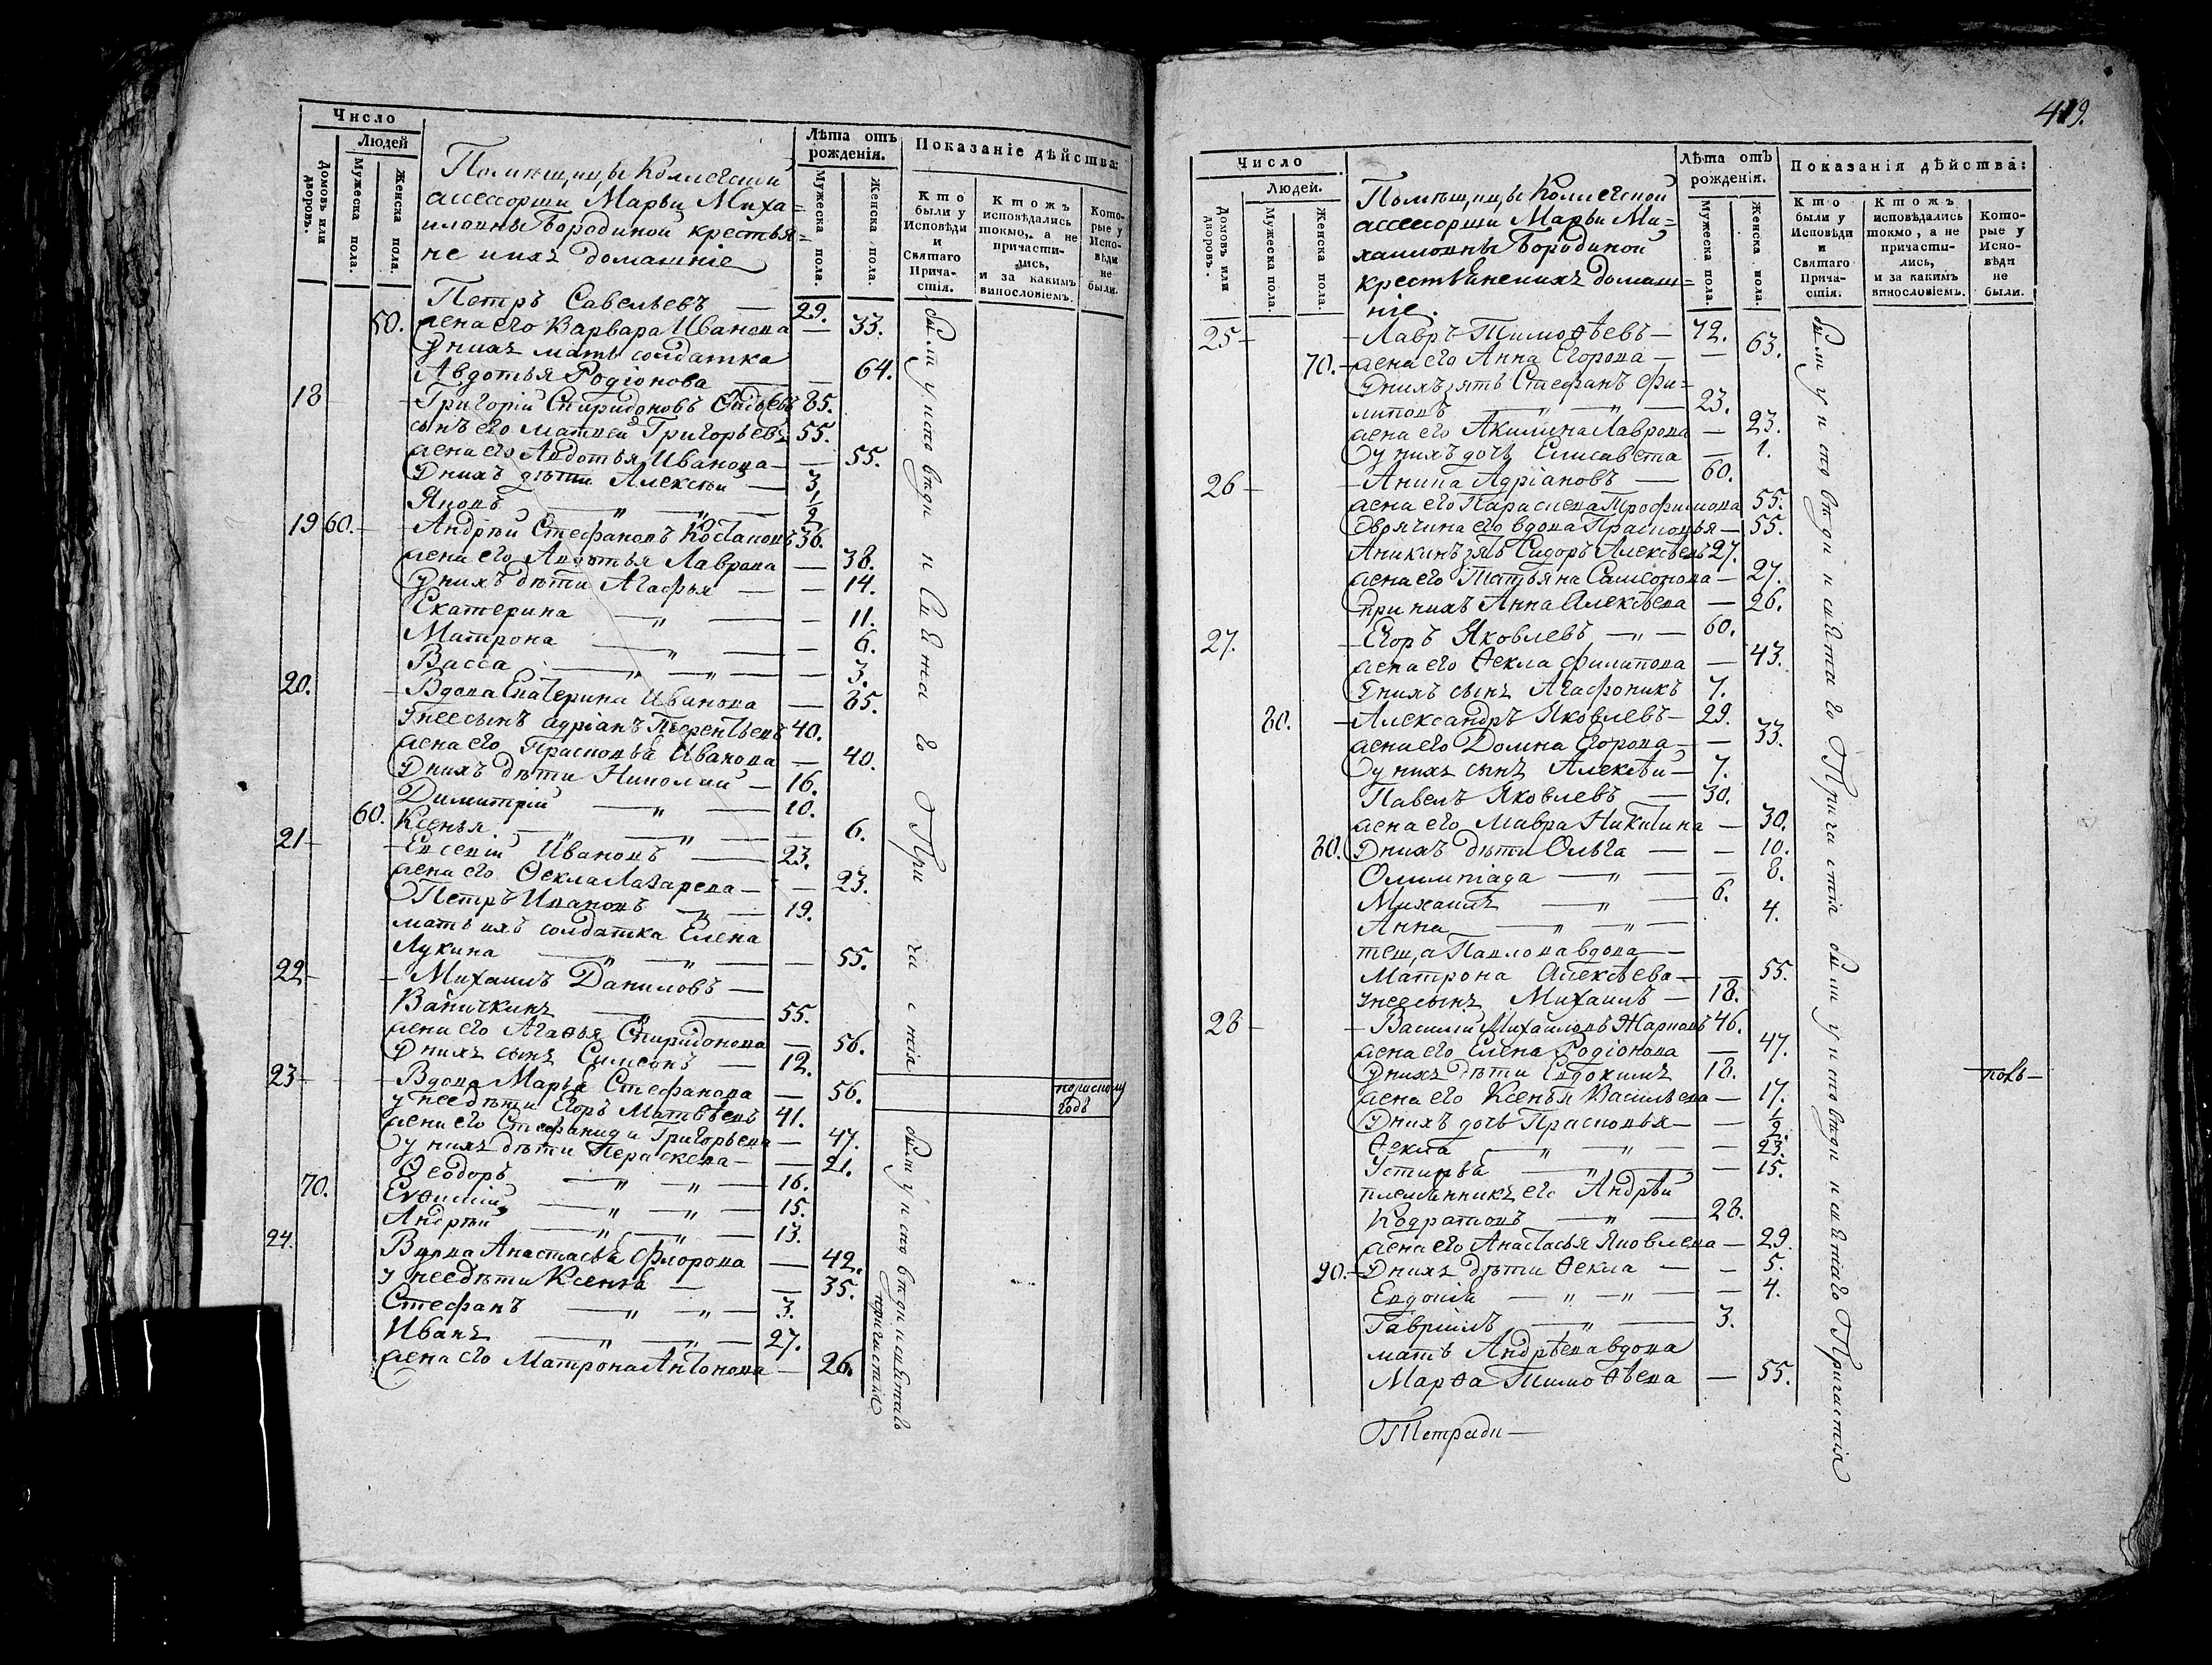 Число
Людей
Домовъ или дворовъ.
Мужеска пола.
Женска пола.
Помѣщицы Коллегской
ассесорши Марьи Миха=
иловны Бородиной крестья=
не ихъ домашніе
Лѣта отъ рожденія.
Мужеска пола.
Женска пола.
Показаніе дѣйства:
Кто были у Исповѣди и Святаго Прича-стія.
Ктожъ исповѣдались токмо, а не причасти-лись, и за какимъ винословіемъ.
Кото-рые у Испо-вѣди не были.
Петръ Савельевъ — 29.
50. жена его Варвара Иванова — 33.
У нихъ мать солдатка
Авдотья Родіонова — 64.
18 Григорій Спиридоновъ 85.
сынъ его Матвей Григорьевъ 55.
жена его Авдотья Иванова — 55.
У нихъ дѣти Алексѣй — 3
Яковъ — 1/2
19 60. Андрѣй Стефановъ 36.
жена его Авдотья Лаврова — 38.
У нихъ дѣти Агафья — 14.
Екатерина — 11.
Матрона — 6.
Васса — 3.
20. Вдова Екатерина Иванова — 85.
у нее сынъ Адріанъ Терентьевъ 40.
жена его Прасковья Иванова — 40.
У нихъ дѣти Николай — 16.
Димитрій — 10.
60. Ксенья — 6.
21 Евсевій Ивановъ — 23.
жена его Ѳекла Лазарева — 23.
Петръ Ивановъ — 19.
мать ихъ солдатка Елена
Лукина — 55.
22 Михаилъ Даниловъ —
Ваничкинъ — 55.
жена его Агаѳья Спиридонова — 56.
У нихъ сынъ Симеонъ — 12.
23 Вдова Марья Стефанова — 56.
у нее дѣти Егоръ Матвѣевъ 41.
жена его Стефанида Григорьева — 47.
у нихъ дѣти Пераскева — 21.
Ѳеодоръ — 16.
70. Евѳимій — 15.
Андрѣй — 13.
24. Вдова Анастасья Флорова — 42.
у нее дѣти Ксенья — 35.
Стефанъ — 3.
Иванъ — 27.
жена его Матрона Антонова — 26.
были у исповѣди и Святаго Причастія
годъ
были у исповѣди и святаго причастія
419.
Число
Людей.
Домовъ или дворовъ.
Мужеска пола.
Женска пола.
Помѣщицы Коллегской
ассесорши Марьи Ми=
хаиловны Бородиной
крестьяне ихъ домаш=
ніе.
Лѣта отъ рожденія.
Мужеска пола.
Женска пола.
Показанія дѣйства:
Кто были у Исповѣди и Святаго Прича-стія.
Ктожъ исповѣдались токмо, а не причасти-лись, и за какимъ винословіемъ.
Кото-рые у Испо-вѣди не были.
25 Лавръ Тимоѳѣевъ — 72.
70. жена его Анна Егорова — 63.
У нихъ зять Стефанъ Фи=
липовъ — 23.
жена его Акилина Лаврова — 23.
у нихъ дочь Елисавета — 1.
26 Аника Адріановъ — 60.
жена его Параскева Трофимова 55.
его вдова Прасковья — 55.
Аникинъ зять Сидоръ Алексѣевъ 27.
жена его Татьяна Самсонова — 27.
при нихъ Анна Алексѣева — 26.
27. Егоръ Яковлевъ — 60.
жена его Ѳекла Филипова — 43.
У нихъ сынъ Агафоникъ 7.
80. Александръ Яковлевъ — 29.
жена его Домна Егорова — 33.
у нихъ сынъ Алексѣй — 7.
Павелъ Яковлевъ — 30.
жена его Мавра Никитина — 30.
80. У нихъ дѣти Ольга — 10.
Олимпіада — 8.
Михаилъ — 6.
Анна — 4.
теща Павлова вдова —
Матрона Алексѣева — 55.
у нее сынъ Михаилъ — 18.
28 Василій Михаиловъ Жарковъ 46.
жена его Елена Родіонова — 47.
У нихъ дѣти Евдокимъ 18.
жена его Ксенья Васильева — 17.
У нихъ дочь Прасковья — 1/2.
Ѳекла — 23.
Устинья — 15.
племянникъ его Андрѣй
Кодратовъ — 28.
жена его Анастасья Яковлева — 29.
90. У нихъ дѣти Ѳекла — 5.
Евдокія — 4.
Гавріилъ — 3.
мать Андрѣева вдова
Марѳа Тимоѳѣева — 55.
были у исповѣди и святаго Причастія были у исповѣди и святаго Причастія
Тетради —